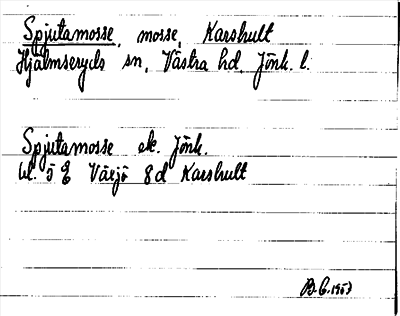 Spjutamosse, mosse, Karshult
Hjälmseryds sn, Västra hd, Jönk. l.
Spjutamosse ek. Jönk.
bl. 5 E Växjö 8d Karshult
B.C. 1953